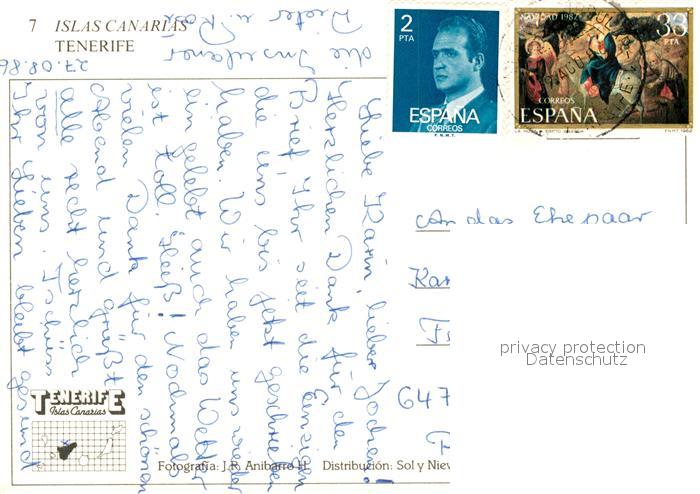 7 ISLAS CANARIAS
TENERIFE
27.08.86
Liebe Karin, lieber Jochen!
Herzlichen Dank für den
Brief, Ihr seit die Einzigen
die uns bis jetzt geschrieben
haben. Wir haben uns wieder
ein gelebt auch das Wetter
ist toll. Heiß! Nochmals
vielen Dank für den schönen
Abend und grüßt
alle recht herzlich
von uns. Tschüss
Ihr Lieben bleibt gesund
die Insulaner
Dieter u. Rosi
2
PTA
ESPAÑA
CORREOS
F.N.M.T.
NAVIDAD 1982
33
CORREOS
ESPAÑA
An das Ehepaar
Kar
647
privacy protection
Datenschutz
TENERIFE
Islas Canarias
Fotografía: J.R. Anibarro H. Distribución: Sol y Niev